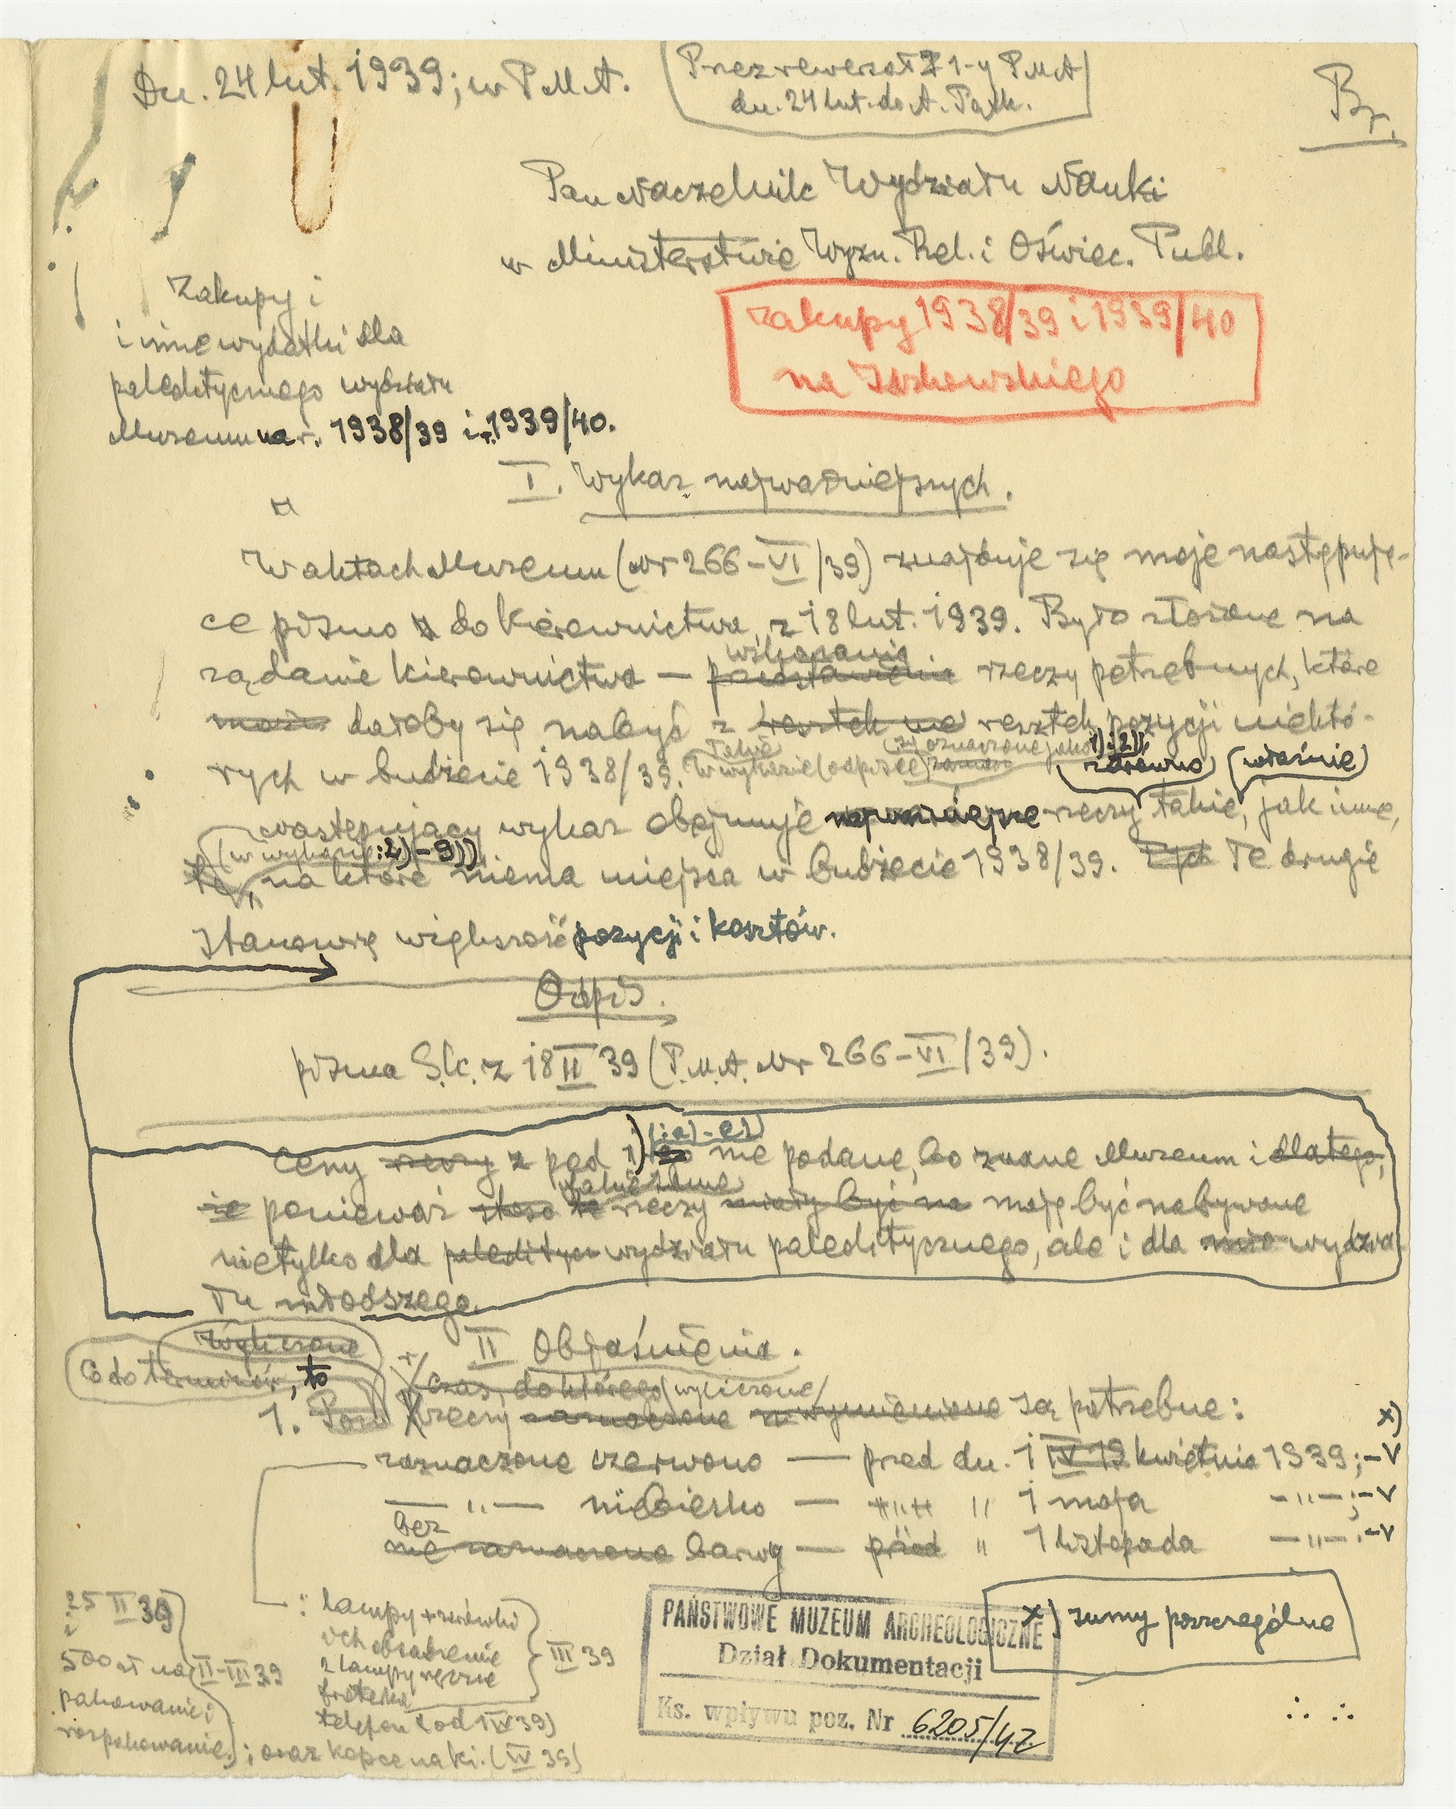 Dn. 24 lut. 1939; w P.M.A.
Przez rewersał 1-y P.M.A
dn. 24 lut. do A.
Br.
Pan Naczelnik Wydziału Nauki
w Ministerstwie Wyzn. Rel. i Oświec. Publ.
Zakupy i
i inne wydatki dla
paleolitycznego wydziału
Muzeum na r. 1938/39 i r. 1939/40.
Zakupy 1938/39 i 1939/40
na
I. Wykaz najważniejszych.
W aktach Muzeum (Nr 266-VI/39) znajduje się moje następują-
ce pismo do Kierownictwa z 18 lut. 1939. Było złożone na
wskazanie
żądanie kierownictwa — przedstawienia rzeczy potrzebnych, które
może dałoby się nabyć z resztek resztek pozycji niektó-
rych w budżecie 1938/39. W wykazie (odpisie) są oznaczone jako 1) i 2)
takie
zarówno (właśnie)
następujący wykaz obejmuje najważniejsze rzeczy takie, jak inne,
(w wykazie: 2) - 9))
na które niema miejsca w budżecie 1938/39. Tych Te drugie
stanowią większość pozycji i kosztów.
Odpis.
pisma S.K. z 18 II 39 (P.M.A. Nr 266-VI/39).
(: a) - e))
Ceny rzeczy z pod 1) nie podane, bo znane Muzeum i dlatego,
że ponieważ rzeczy miały być na mają być nabywane
nietylko dla paleolitycz wydziału paleolitycznego, ale i dla wydzia-
łu młodszego.
II Objaśnienia.
Wyliczone
Co do terminów, to
czas, do którego wyliczone
1. rzeczy zaznaczone wymienione są potrzebne:
zaznaczone czerwono — przed dn. 1 IV 19 kwietnia 1939; -V
x)
— " — niebiesko — " " 1 maja — " —; -V
bez
nie zaznaczone barwy — przed " 1 listopada — " — . -V
: lampy + żarówki
ich obsadzenie
2 lampy ręczne
froterka
telefon (od 1 IV 39)
III 39
25 II 39
i
500 zł na II-III 39
pakowanie i
rozpakowanie; oraz (IV 39)
x) sumy poszczególne
PAŃSTWOWE MUZEUM ARCHEOLOGICZNE
Dział Dokumentacji
Ks. wpływu poz. Nr 6205/42